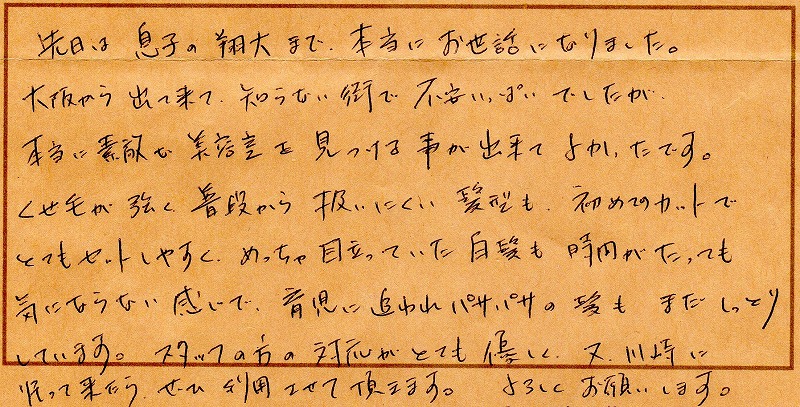 先日は 息子の 翔大 まで、本当に お世話になりました。
大阪から 出て来て、知らない 街で 不安いっぱい でしたが、
本当に 素敵な 美容室を 見つける 事が 出来て よかったです。
くせ毛が 強く、普段から 扱いにくい 髪型も、初めてのカットで
とてもセットしやすく、めっちゃ目立っていた 白髪も 時間がたっても
気にならない 感じで、育児に 追われ パサパサの 髪も まだ しっとり
しています。 スタッフの方の 対応が とても 優しく、又、川崎に
帰って来たら、ぜひ 利用させて 頂きます。 よろしく お願いします。